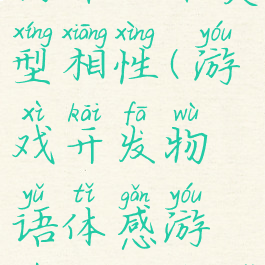 xíng xiāng xìng yóu
型相性(游
xì kāi fā wù
戏开发物
yǔ tǐ gǎn yóu
语体感游